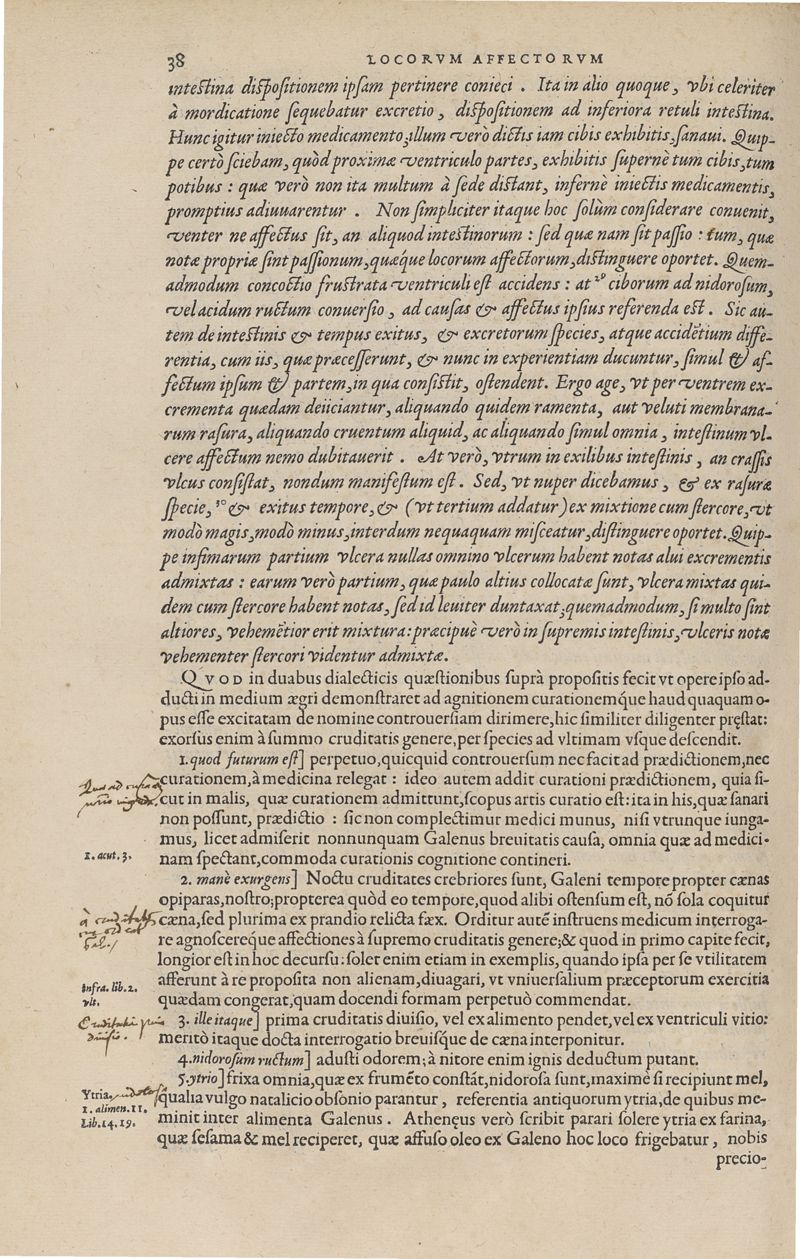 38 LOCORVM AFFECTORVM
inteſtina diſpoſitionem ipſam pertinere conieci . Ita in alio quoque, vbi celeriter
à mordicatione ſequebatur excretio, diſpoſitionem ad inferiora retuli inteſtina.
Hunc igitur iniecto medicamento, illum verò dictis iam cibis exhibitis, ſanaui. Quip-
pe certò ſciebam, quòd proximæ ventriculo partes, exhibitis ſupernè tum cibis, tum
potibus : quæ verò non ita multum à ſede diſtant, infernè iniectis medicamentis,
promptius adiuuarentur . Non ſimpliciter itaque hoc ſolùm conſiderare conuenit,
venter ne affectus ſit, an aliquod inteſtinorum : ſed quæ nam ſit paſſio : tum, quæ
notæ propriæ ſint paſſionum, quæque locorum affectorum, diſtinguere oportet. Quem-
admodum concoctio fruſtrata ventriculi eſt accidens : at ²⁹ ciborum ad nidoroſum,
vel acidum ructum conuerſio, ad cauſas & affectus ipſius referenda eſt . Sic au-
tem de inteſtinis & tempus exitus, & excretorum ſpecies, atque accidẽtium diffe-
rentia, cum iis, quæ præceſſerunt, & nunc in experientiam ducuntur, ſimul & af-
fectum ipſum & partem, in qua conſiſtit, oſtendent. Ergo age, vt per ventrem ex-
crementa quædam deiiciantur, aliquando quidem ramenta, aut veluti membrana-
rum raſura, aliquando cruentum aliquid, ac aliquando ſimul omnia, inteſtinum vl-
cere affectum nemo dubitauerit . At verò, vtrum in exilibus inteſtinis, an craſſis
vlcus conſiſtat, nondum manifeſtum eſt . Sed, vt nuper dicebamus, & ex raſuræ
ſpecie, ³⁰ & exitus tempore, & (vt tertium addatur) ex mixtione cum ſtercore, vt
modò magis, modò minus, interdum nequaquam miſceatur, diſtinguere oportet. Quip-
pe infimarum partium vlcera nullas omnino vlcerum habent notas alui excrementis
admixtas : earum verò partium, quæ paulo altius collocatæ ſunt, vlcera mixtas qui-
dem cum ſtercore habent notas, ſed id leuiter duntaxat, quemadmodum, ſi multo ſint
altiores, vehemẽtior erit mixtura: præcipuè verò in ſupremis inteſtinis, vlceris notæ
vehementer ſtercori videntur admixtæ.
QVOD in duabus dialecticis quæſtionibus ſuprà propoſitis fecit vt opere ipſo ad-
ducti in medium ægri demonſtraret ad agnitionem curationemq́ue haudquaquam o-
pus eſſe excitatam de nomine controuerſiam dirimere, hic ſimiliter diligenter pręſtat:
exorſus enim à ſummo cruditatis genere, per ſpecies ad vltimam vſque deſcendit.
1. quod futurum eſt] perpetuo, quicquid controuerſum nec facit ad prædictionem, nec
curationem, à medicina relegat : ideo autem addit curationi prædictionem, quia ſi-
cut in malis, quæ curationem admittunt, ſcopus artis curatio eſt: ita in his, quæ ſanari
non poſſunt, prædictio : ſic non complectimur medici munus, niſi vtrunque iunga-
mus, licet admiſerit nonnunquam Galenus breuitatis cauſa, omnia quæ ad medici-
1. acut. 3.
nam ſpectant, commoda curationis cognitione contineri.
2. manè exurgens] Noctu cruditates crebriores ſunt, Galeni tempore propter cænas
opiparas, noſtro, propterea quòd eo tempore, quod alibi oſtenſum eſt, nõ ſola coquitur
cæna, ſed plurima ex prandio relicta fæx. Orditur autẽ inſtruens medicum interroga-
re agnoſcereq́ue affectiones à ſupremo cruditatis genere; & quod in primo capite fecit,
longior eſt in hoc decurſu: ſolet enim etiam in exemplis, quando ipſa per ſe vtilitatem
afferunt à re propoſita non alienam, diuagari, vt vniuerſalium præceptorum exercitia
Infra. lib. 2.
vlt.
quædam congerat, quam docendi formam perpetuò commendat.
3. ille itaque] prima cruditatis diuiſio, vel ex alimento pendet, vel ex ventriculi vitio:
meritò itaque docta interrogatio breuiſq́ue de cæna interponitur.
4. nidoroſum ructum] aduſti odorem; à nitore enim ignis deductum putant.
5. ytrio] frixa omnia, quæ ex frumẽto conſtãt, nidoroſa ſunt, maximè ſi recipiunt mel,
Ytria.
1. alimen. 11.
Lib. 14. 19.
qualia vulgo natalicio obſonio parantur, referentia antiquorum ytria, de quibus me-
minit inter alimenta Galenus . Athenęus verò ſcribit parari ſolere ytria ex farina,
quæ ſeſama & mel reciperet, quæ affuſo oleo ex Galeno hoc loco frigebatur, nobis
precio-